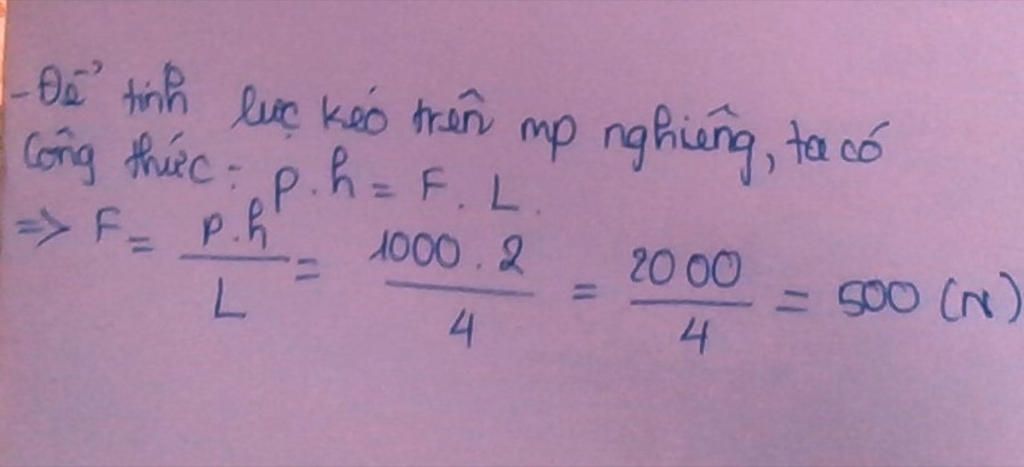 - Để tính lực kéo trên mp nghiêng, ta có
Công thức: P.h = F.L.
=> F = P.h/L = 1000.2/4 = 2000/4 = 500 (N)